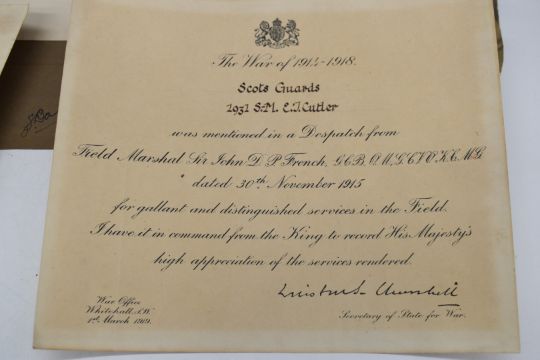 The War of 1914-1918.
Scots Guards
1931 S.M. E.J. Cutler
was mentioned in a Despatch from
Field Marshal Sir John D. P. French, G.C.B. O.M. G.C.V.O. K.C.M.G.
dated 30th November 1915
for gallant and distinguished services in the Field.
I have it in command from the King to record His Majesty's
high appreciation of the services rendered.
Winston S. Churchill
Secretary of State for War.
War Office
Whitehall, S.W.
1st March 1919.